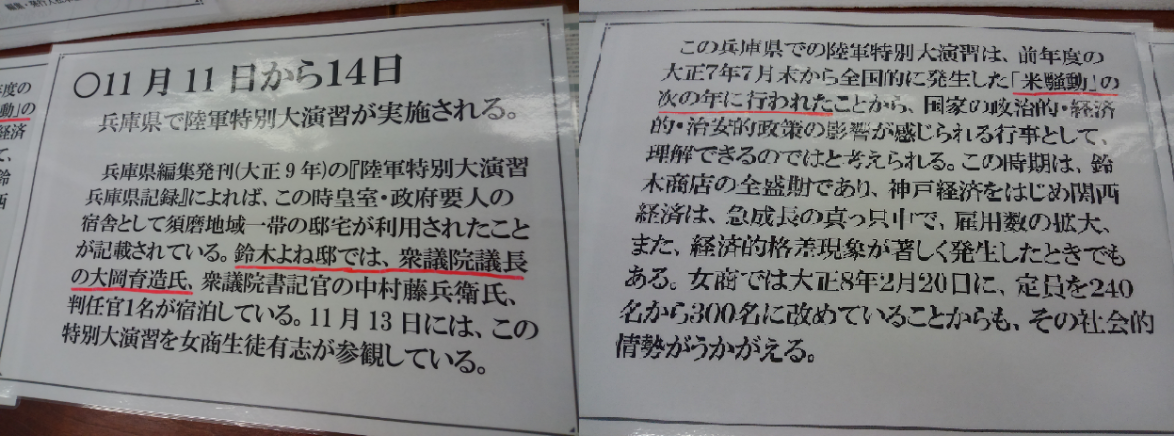 編集・発行人
年度の
動」の
経済
て、
鈴
西
〇11月11日から14日
兵庫県で陸軍特別大演習が実施される。
兵庫県編集発刊(大正9年)の『陸軍特別大演習
兵庫県記録』によれば、この時皇室・政府要人の
宿舎として須磨地域一帯の邸宅が利用されたこと
が記載されている。鈴木よね邸では、衆議院議長
の大岡育造氏、衆議院書記官の中村藤兵衛氏、
判任官1名が宿泊している。11月13日には、この
特別大演習を女商生徒有志が参観している。
この兵庫県での陸軍特別大演習は、前年度の
大正7年7月末から全国的に発生した「米騒動」の
次の年に行われたことから、国家の政治的・経済
的・治安的政策の影響が感じられる行事として、
理解できるのではと考えられる。この時期は、鈴
木商店の全盛期であり、神戸経済をはじめ関西
経済は、急成長の真っ只中で、雇用数の拡大、
また、経済的格差現象が著しく発生したときでも
ある。女商では大正8年2月20日に、定員を240
名から300名に改めていることからも、その社会的
情勢がうかがえる。